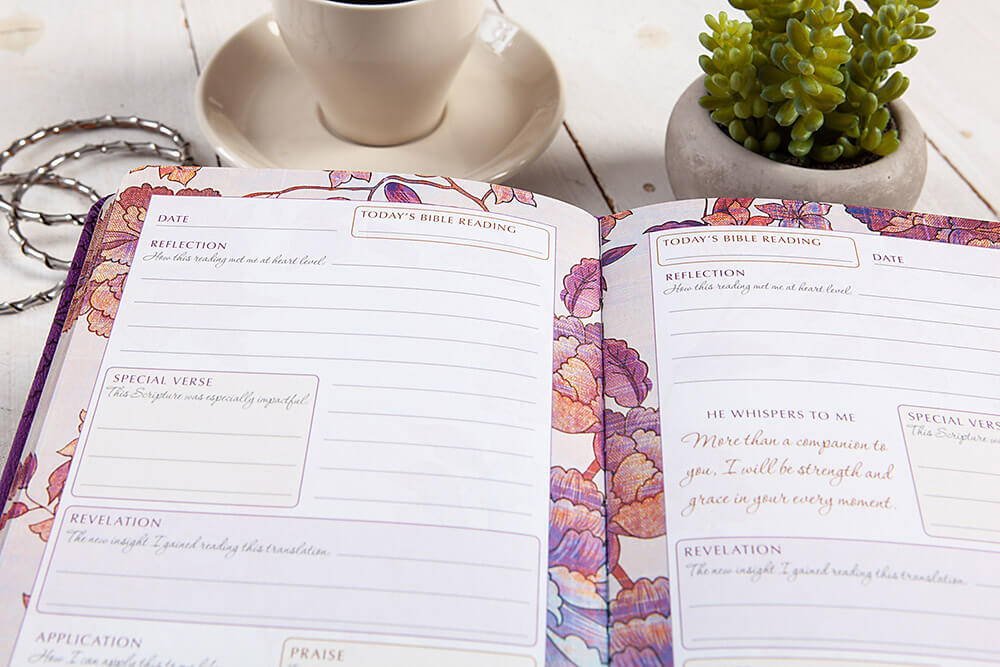 DATE
TODAY'S BIBLE READING
REFLECTION
How this reading met me at heart level.
SPECIAL VERSE
This Scripture was especially impactful.
REVELATION
The new insight I gained reading this translation.
APPLICATION
How I can apply this to my life
PRAISE
TODAY'S BIBLE READING
DATE
REFLECTION
How this reading met me at heart level.
HE WHISPERS TO ME
More than a companion to
you, I will be strength and
grace in your every moment.
SPECIAL VERS
This Scripture was
REVELATION
The new insight I gained reading this translation.